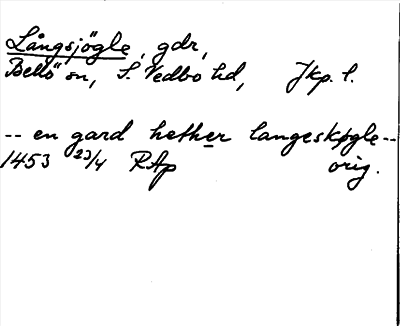 Långsjögle, gdr,
Bellö sn, S. Vedbo hd, Jkp. l.
-- en gard hether langeskøgle --
1453 23/4 RAp orig.